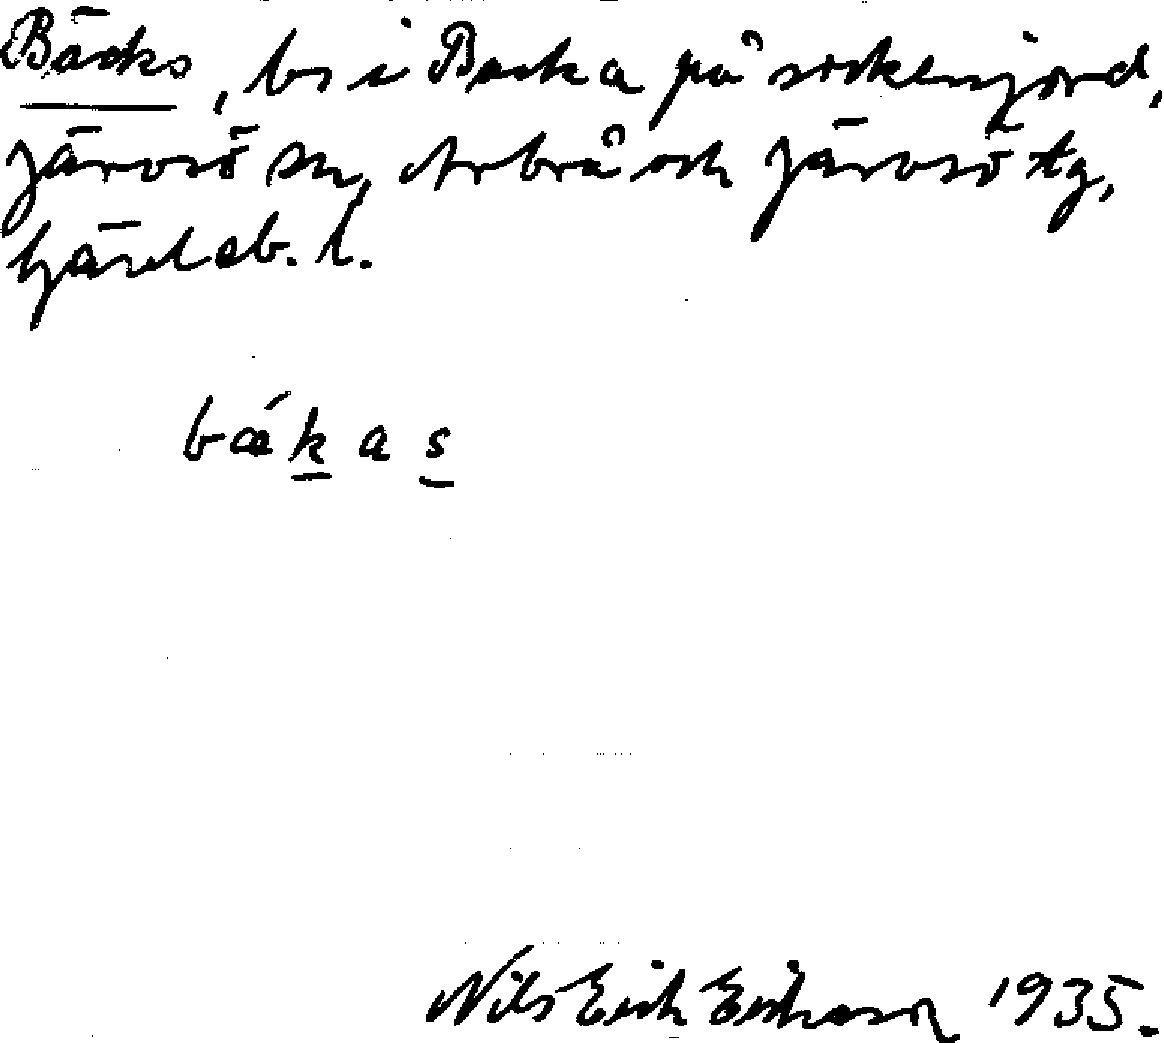 Bäcks, bs i Backa på sockenjord,
Järvsö sn, Arbrå och Järvsö tg,
Gävleb. l.
bǽkas
Nils Erik Eriksson 1935.